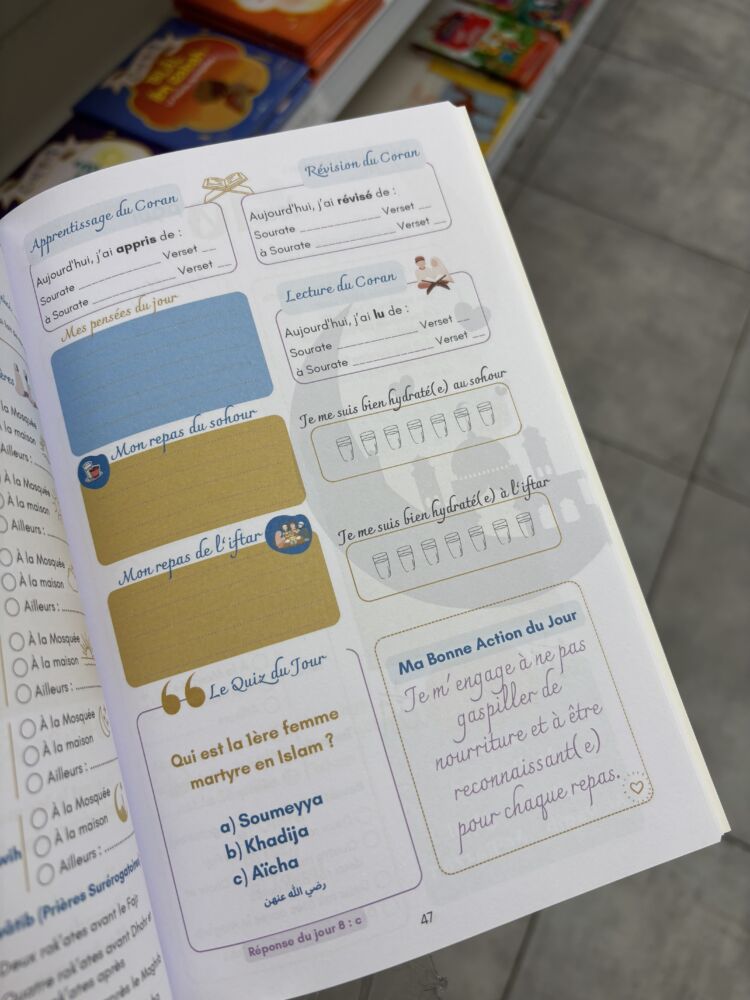 Apprentissage du Coran
Aujourd'hui, j'ai appris de :
Sourate ____________ Verset __
à Sourate ____________ Verset __
Révision du Coran
Aujourd'hui, j'ai révisé de :
Sourate ____________ Verset __
à Sourate ____________ Verset __
Mes pensées du jour
Lecture du Coran
Aujourd'hui, j'ai lu de :
Sourate ____________ Verset __
à Sourate ____________ Verset __
Mon repas du sohour
Je me suis bien hydraté(e) au sohour
Mon repas de l'iftar
Je me suis bien hydraté(e) à l'iftar
Le Quiz du Jour
Qui est la 1ère femme
martyre en Islam ?
a) Soumeyya
b) Khadija
c) Aïcha
رضي الله عنهن
Réponse du jour 8 : c
Ma Bonne Action du Jour
Je m'engage à ne pas
gaspiller de
nourriture et à être
reconnaissant(e)
pour chaque repas.
47
À la maison
Ailleurs :
À la Mosquée
À la maison
Ailleurs :
À la Mosquée
À la maison
Ailleurs :
À la Mosquée
À la maison
Ailleurs :
À la Mosquée
À la maison
Ailleurs :
À la Mosquée
À la maison
Ailleurs :
(Prières Surérogatoires
Deux rak'ates avant le Fajr
Quatre rak'ates avant Dhohr
rak'ates après